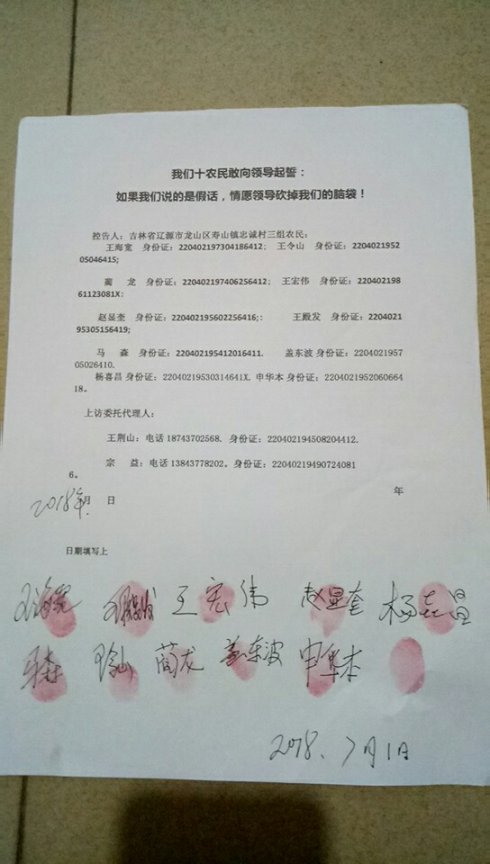 我们十农民敢向领导起誓：
如果我们说的是假话，情愿领导砍掉我们的脑袋！
控告人：吉林省辽源市龙山区寿山镇忠诚村三组农民：
王海宽 身份证：220402197304186412； 王令山 身份证：2204021952
05046415；
蔺 龙 身份证：220402197406256412； 王宏伟 身份证：220402198
61123081X：
赵显奎 身份证：220402195602256416；： 王殿发 身份证：2204021
95305156419；
马 森 身份证：220402195412016411. 盖东波 身份证：2204021957
05026410.
杨喜昌 身份证：22040219530314641X. 申华本 身份证：2204021952060664
18。
上访委托代理人：
王荆山：电话 18743702568. 身份证：220402194508204412.
宗 益：电话 13843778202。身份证：22040219490724081
6。
年
2018年月 日
日期填写上
王海宽 王殿发 王宏伟 赵显奎 杨喜昌
马森 王令山 蔺龙 盖东波 申华本
2018、7月1日